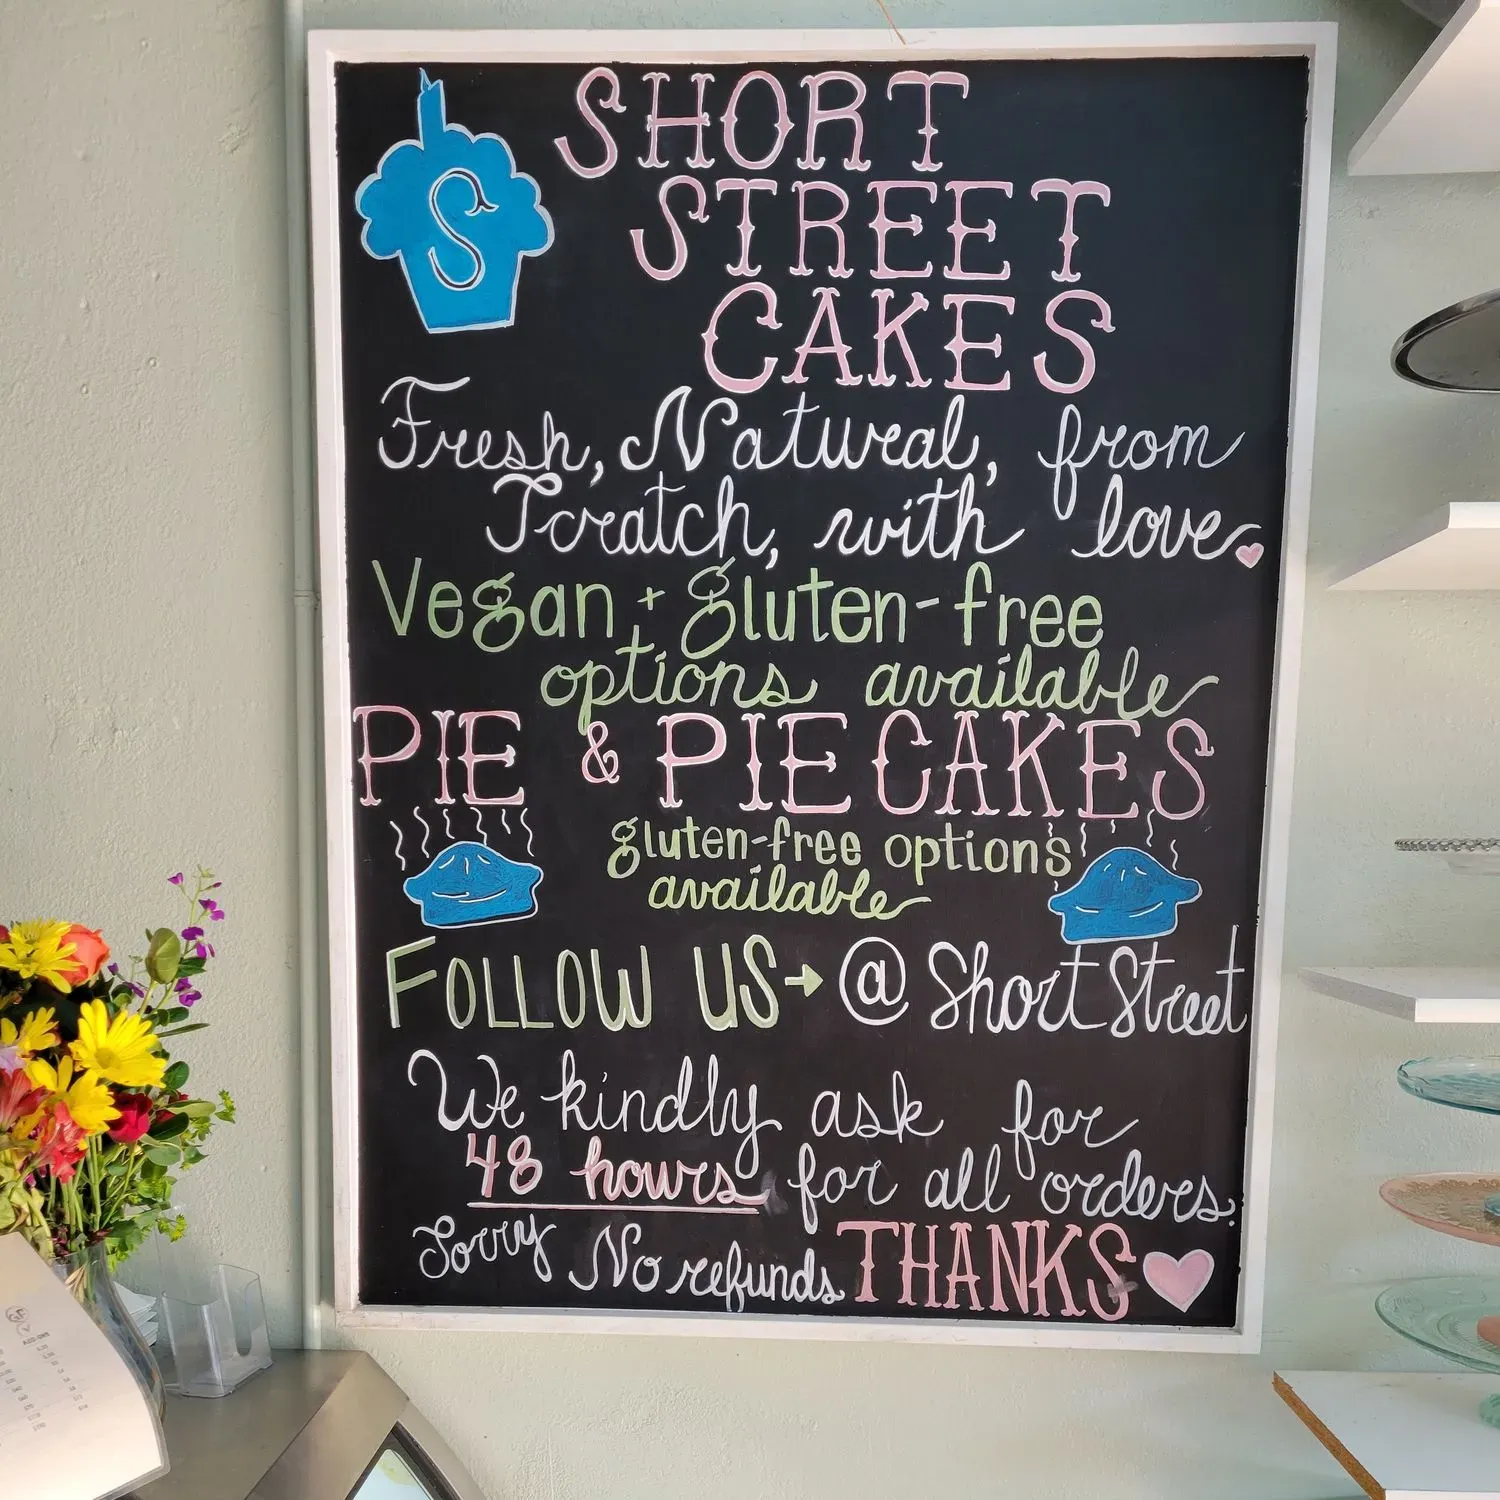 S
SHORT
STREET
CAKES
Fresh, Natural, from
Scratch, with love
Vegan + gluten-free
options available
PIE & PIE CAKES
gluten-free options
available
FOLLOW US → @ShortStreet
We kindly ask for
48 hours for all orders.
Sorry No refunds THANKS